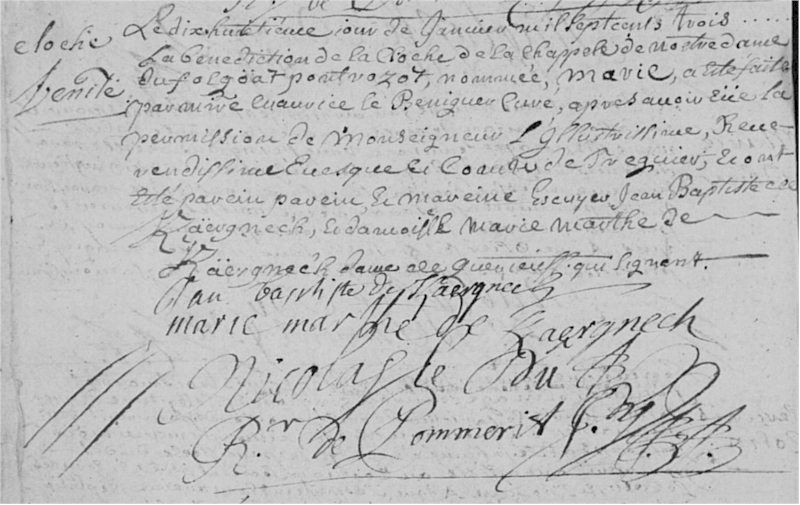 cloche
benite
Le dixhutiéme jour de Janvier mil sept cents trois .....
La benediction de la cloche de la chappele de nostre dame
du folgoat pontrozot, nommée, marie, a esté faite
par mire Maurice le Beniguer curé, apres avoir eüe la
permission de Monseigneur L'Illustrissime, Reve-
rendissime Evesque et Comte de Treguier, Et ont
esté parein parein, et mareine Escuyer Jean Baptiste de
Kaergnech, et damoiselle marie marthe de
Kaergnech dame de qui signent.
Jan baptiste de Kaergnech
marie marthe de Kaergnech
Nicolas le
R. de Pommerit